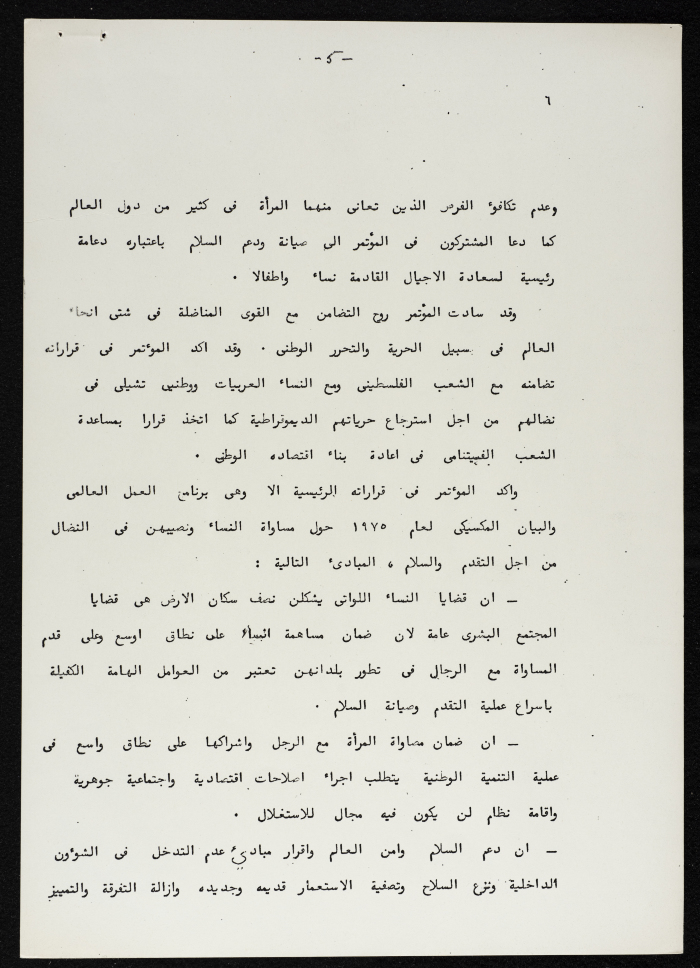 -٥-
٦
وعدم تكافوء الفرص الذين تعانى منهما المرأة فى كثير من دول العالم
كما دعا المشتركون فى المؤتمر الى صيانة ودعم السلام باعتباره دعامة
رئيسية لسعادة الاجيال القادمة نساء واطفالا .
وقد سادت المؤتمر روح التضامن مع القوى المناضلة فى شتى انحاء
العالم فى سبيل الحرية والتحرر الوطنى . وقد اكد الموءتمر فى قراراته
تضامنه مع الشعب الفلسطينى ومع النساء العربيات ووطنيى تشيلى فى
نضالهم من اجل استرجاع حرياتهم الديموقراطية كما اتخذ قرارا بمساعدة
الشعب الفيتنامى فى اعادة بناء اقتصاده الوطنى .
واكد الموءتمر فى قراراته الرئيسية الا وهى برنامج العمل العالمى
والبيان المكسيكى لعام ١٩٧٥ حول مساواة النساء ونصيبهن فى النضال
من اجل التقدم والسلام ، المبادىء التالية :
ـ ان قضايا النساء اللواتى يشكلن نصف سكان الارض هى قضايا
المجتمع البشرى عامة لان ضمان مساهمة النساء على نطاق اوسع وعلى قدم
المساواة مع الرجال فى تطور بلدانهن تعتبر من العوامل الهامة الكفيلة
باسراع عملية التقدم وصيانة السلام .
ـ ان ضمان مصاواة المرأة مع الرجل واشراكها على نطاق واسع فى
عملية التنمية الوطنية يتطلب اجراء اصلاحات اقتصادية واجتماعية جوهرية
واقامة نظام لن يكون فيه مجال للاستغلال .
ـ ان دعم السلام وامن العالم واقرار مبادىء عدم التدخل فى الشوءون
الداخلية ونزع السلاح وتصفية الاستعمار قديمه وجديده وازالة التفرقة والتمييز